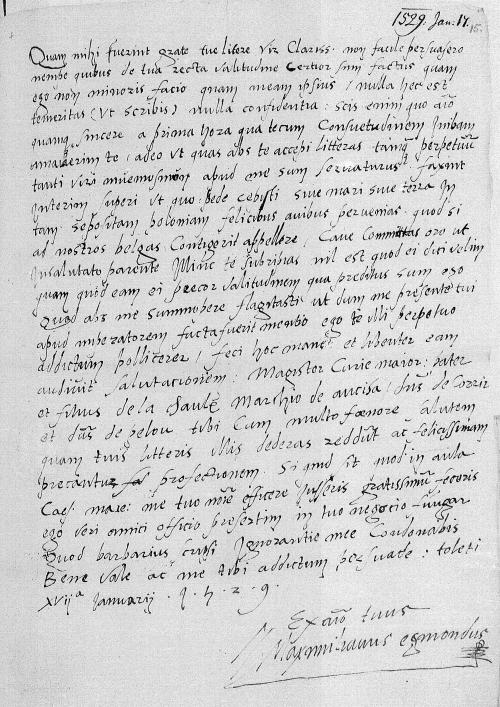 1529. Jan. 17.
15.
Quam mihi fuerint grate tue litere vir Clariss. non facile persuasero
nempe quibus de tua recta valitudine certior sum factus quam
ego non minoris facio quam meam ipsius / nulla hec est
temeritas (ut scribis) nulla confidentia: scis enim quo aīo
quamq sincere a prima hora qua tecum Consuetudinem inibam
amaverim te / adeo ut quas abs te accepi litteras tamq perpetuū
tanti viri apud me sum servaturus. faxint
interim superi ut quo pede cepisti sive mari sive terra in
tam sepositam poloniam felicibus avibus pervenias. quod si
ad nostros belgas Contigerit appellere / Cave Committas oro ut
insalutato parente Minc te subripias nil est quod ei dici velim
quam quod eam ei precor valitudinem qua preditus sum ego
Quod abs me summopere flagitasti ut dum me presente tui
apud imperatorem facta fuerit mentio ego te illi perpetuo
addictum pollicerer / feci hoc mane et libenter eam
audivit salutationem: Magister Curie maior: pater
et filius de la Saulx Marchio de / dūs de
et dūs de belou tibi Cum multo foenore salutem
quam tuis litteris illis dederas reddūt ac felicissimam
precantur profectionem. Si quid sit quod in aula
Caes. maie: me tuo noīe efficere iusseris gratissimū feceris
ego veri amici officio presertim in tuo negocio fungar
Quod barbarius scripsi ignorantie mee Condonabis
Bene vale ac me tibi addictum persuade: toleti
XVIIa Januarij 1529.
Ex aīo tuus
Maximilianus egmondus